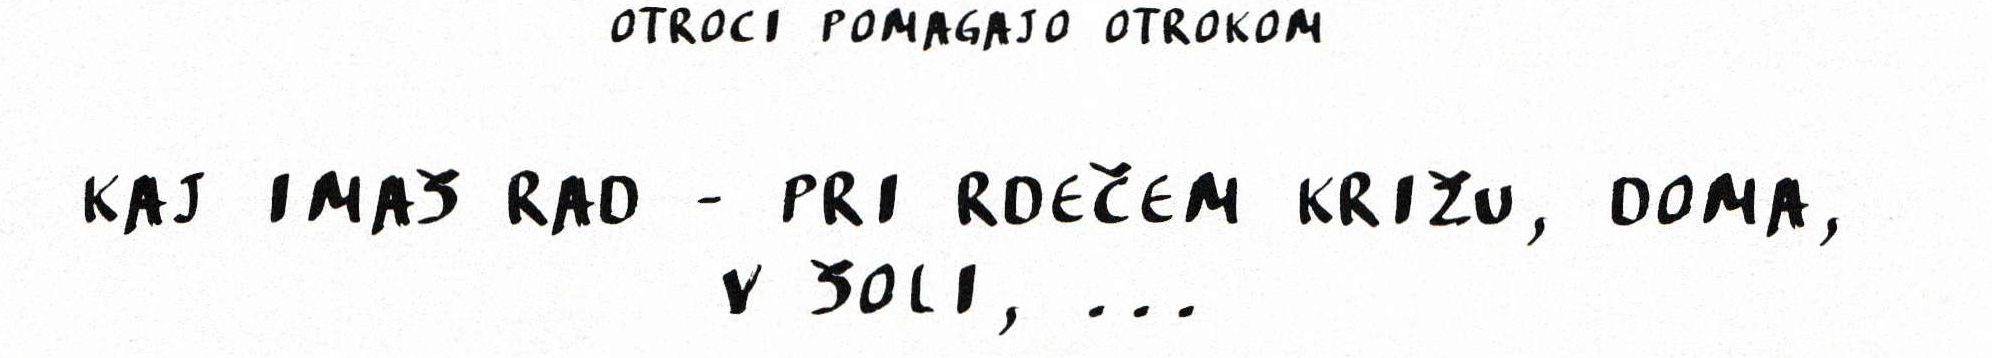 OTROCI POMAGAJO OTROKOM
KAJ IMAŠ RAD - PRI RDEČEM KRIŽU, DOMA,
V ŠOLI, ...